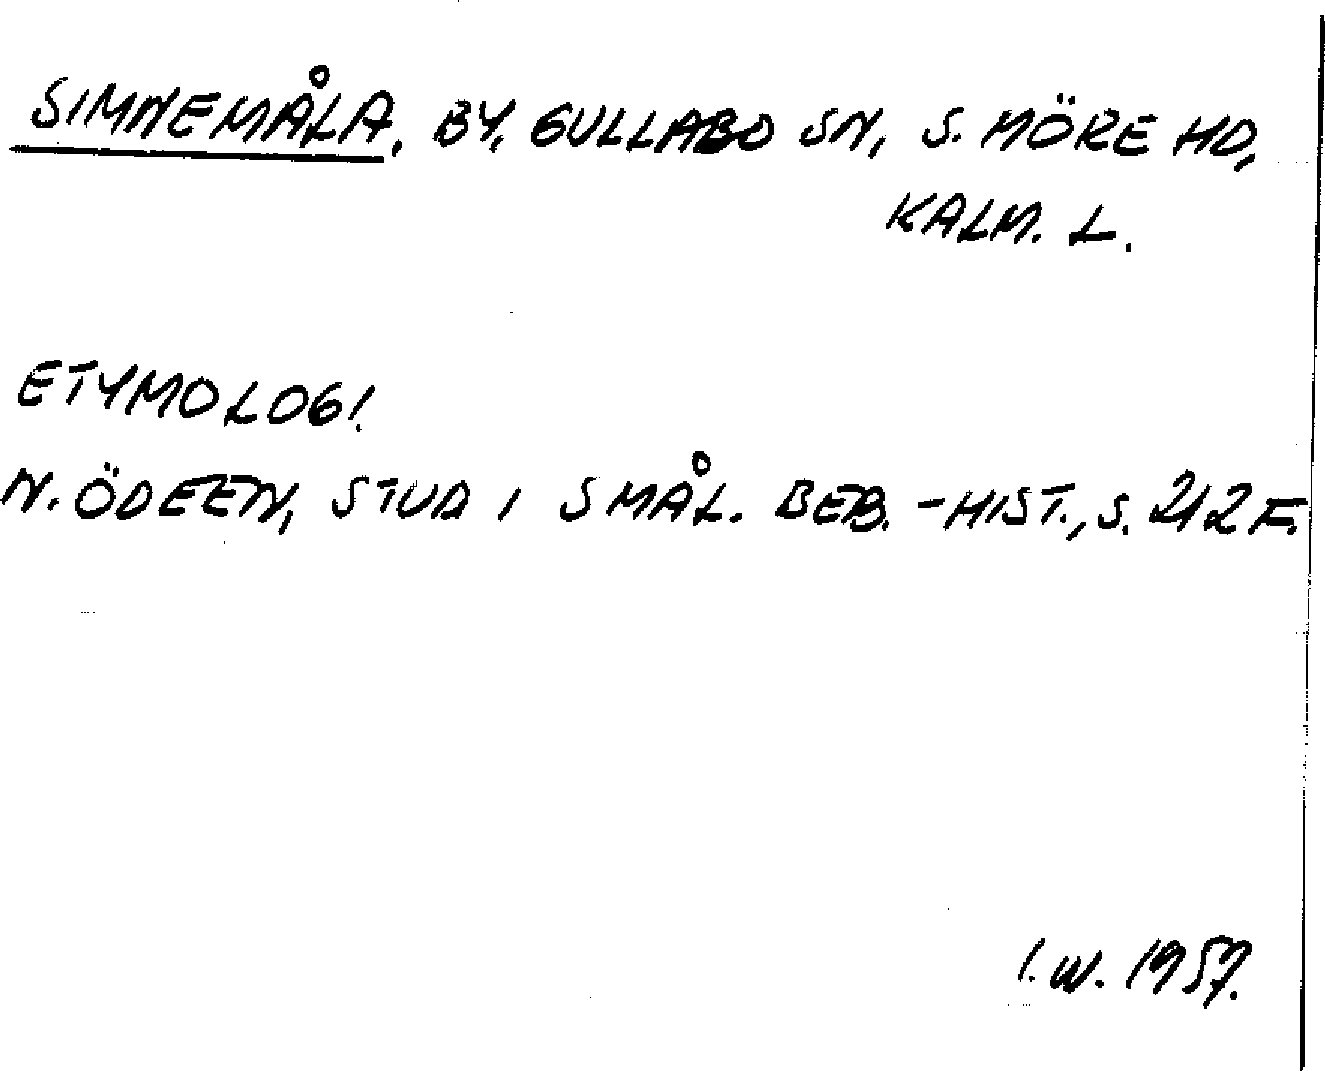 SIMNEMÅLA, BY, GULLABO SN, S. MÖRE HD,
KALM. L.
ETYMOLOGI.
N. ÖDEEN, STUD I SMÅL. BEB.-HIST., S. 212 F.
I. W. 1957.